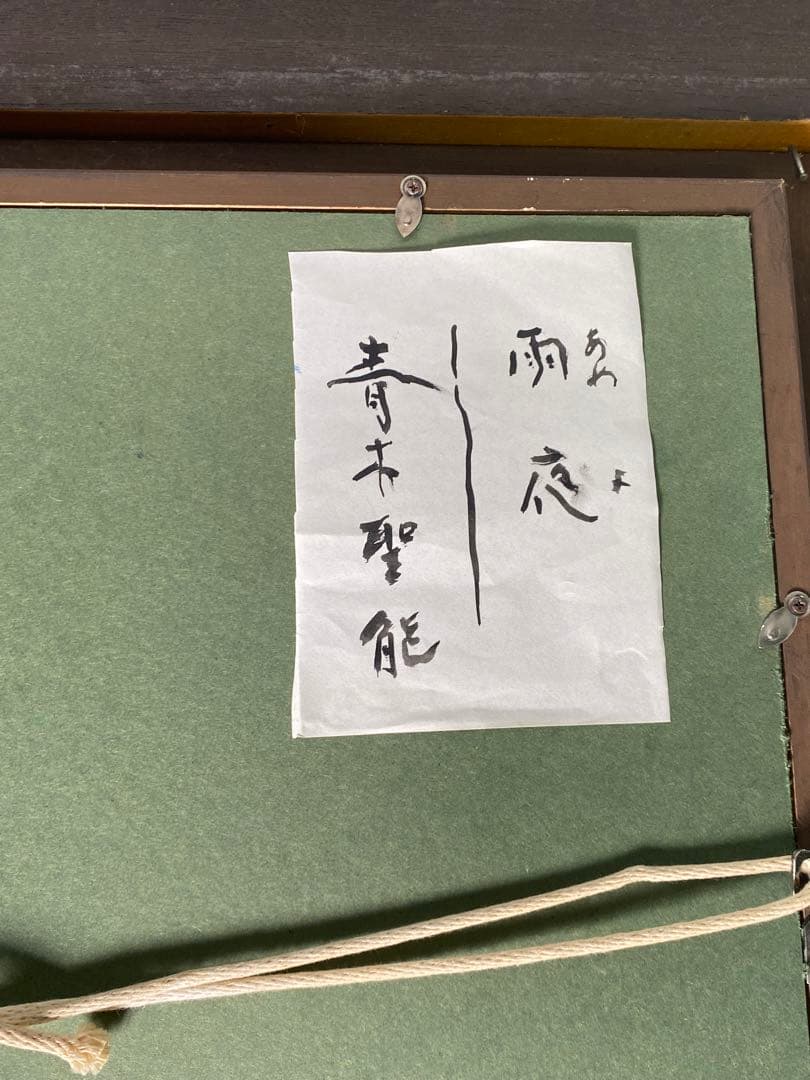 あめよ
雨夜
青木聖能